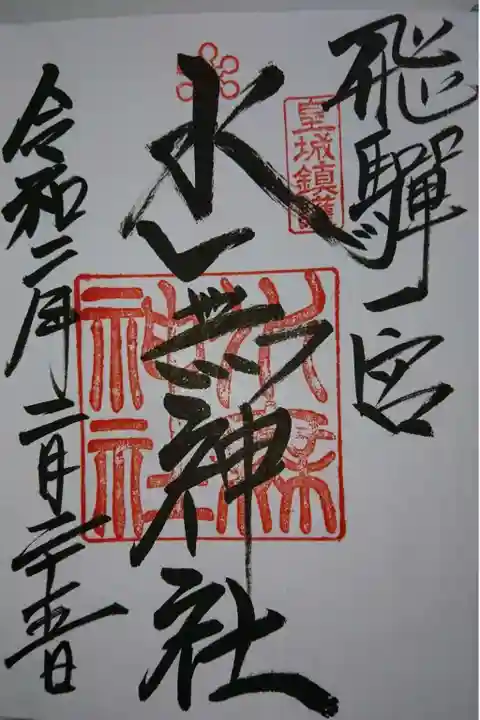 飛騨一宮
皇城鎮護
水無神社
水無神社
令和二年二月二十五日